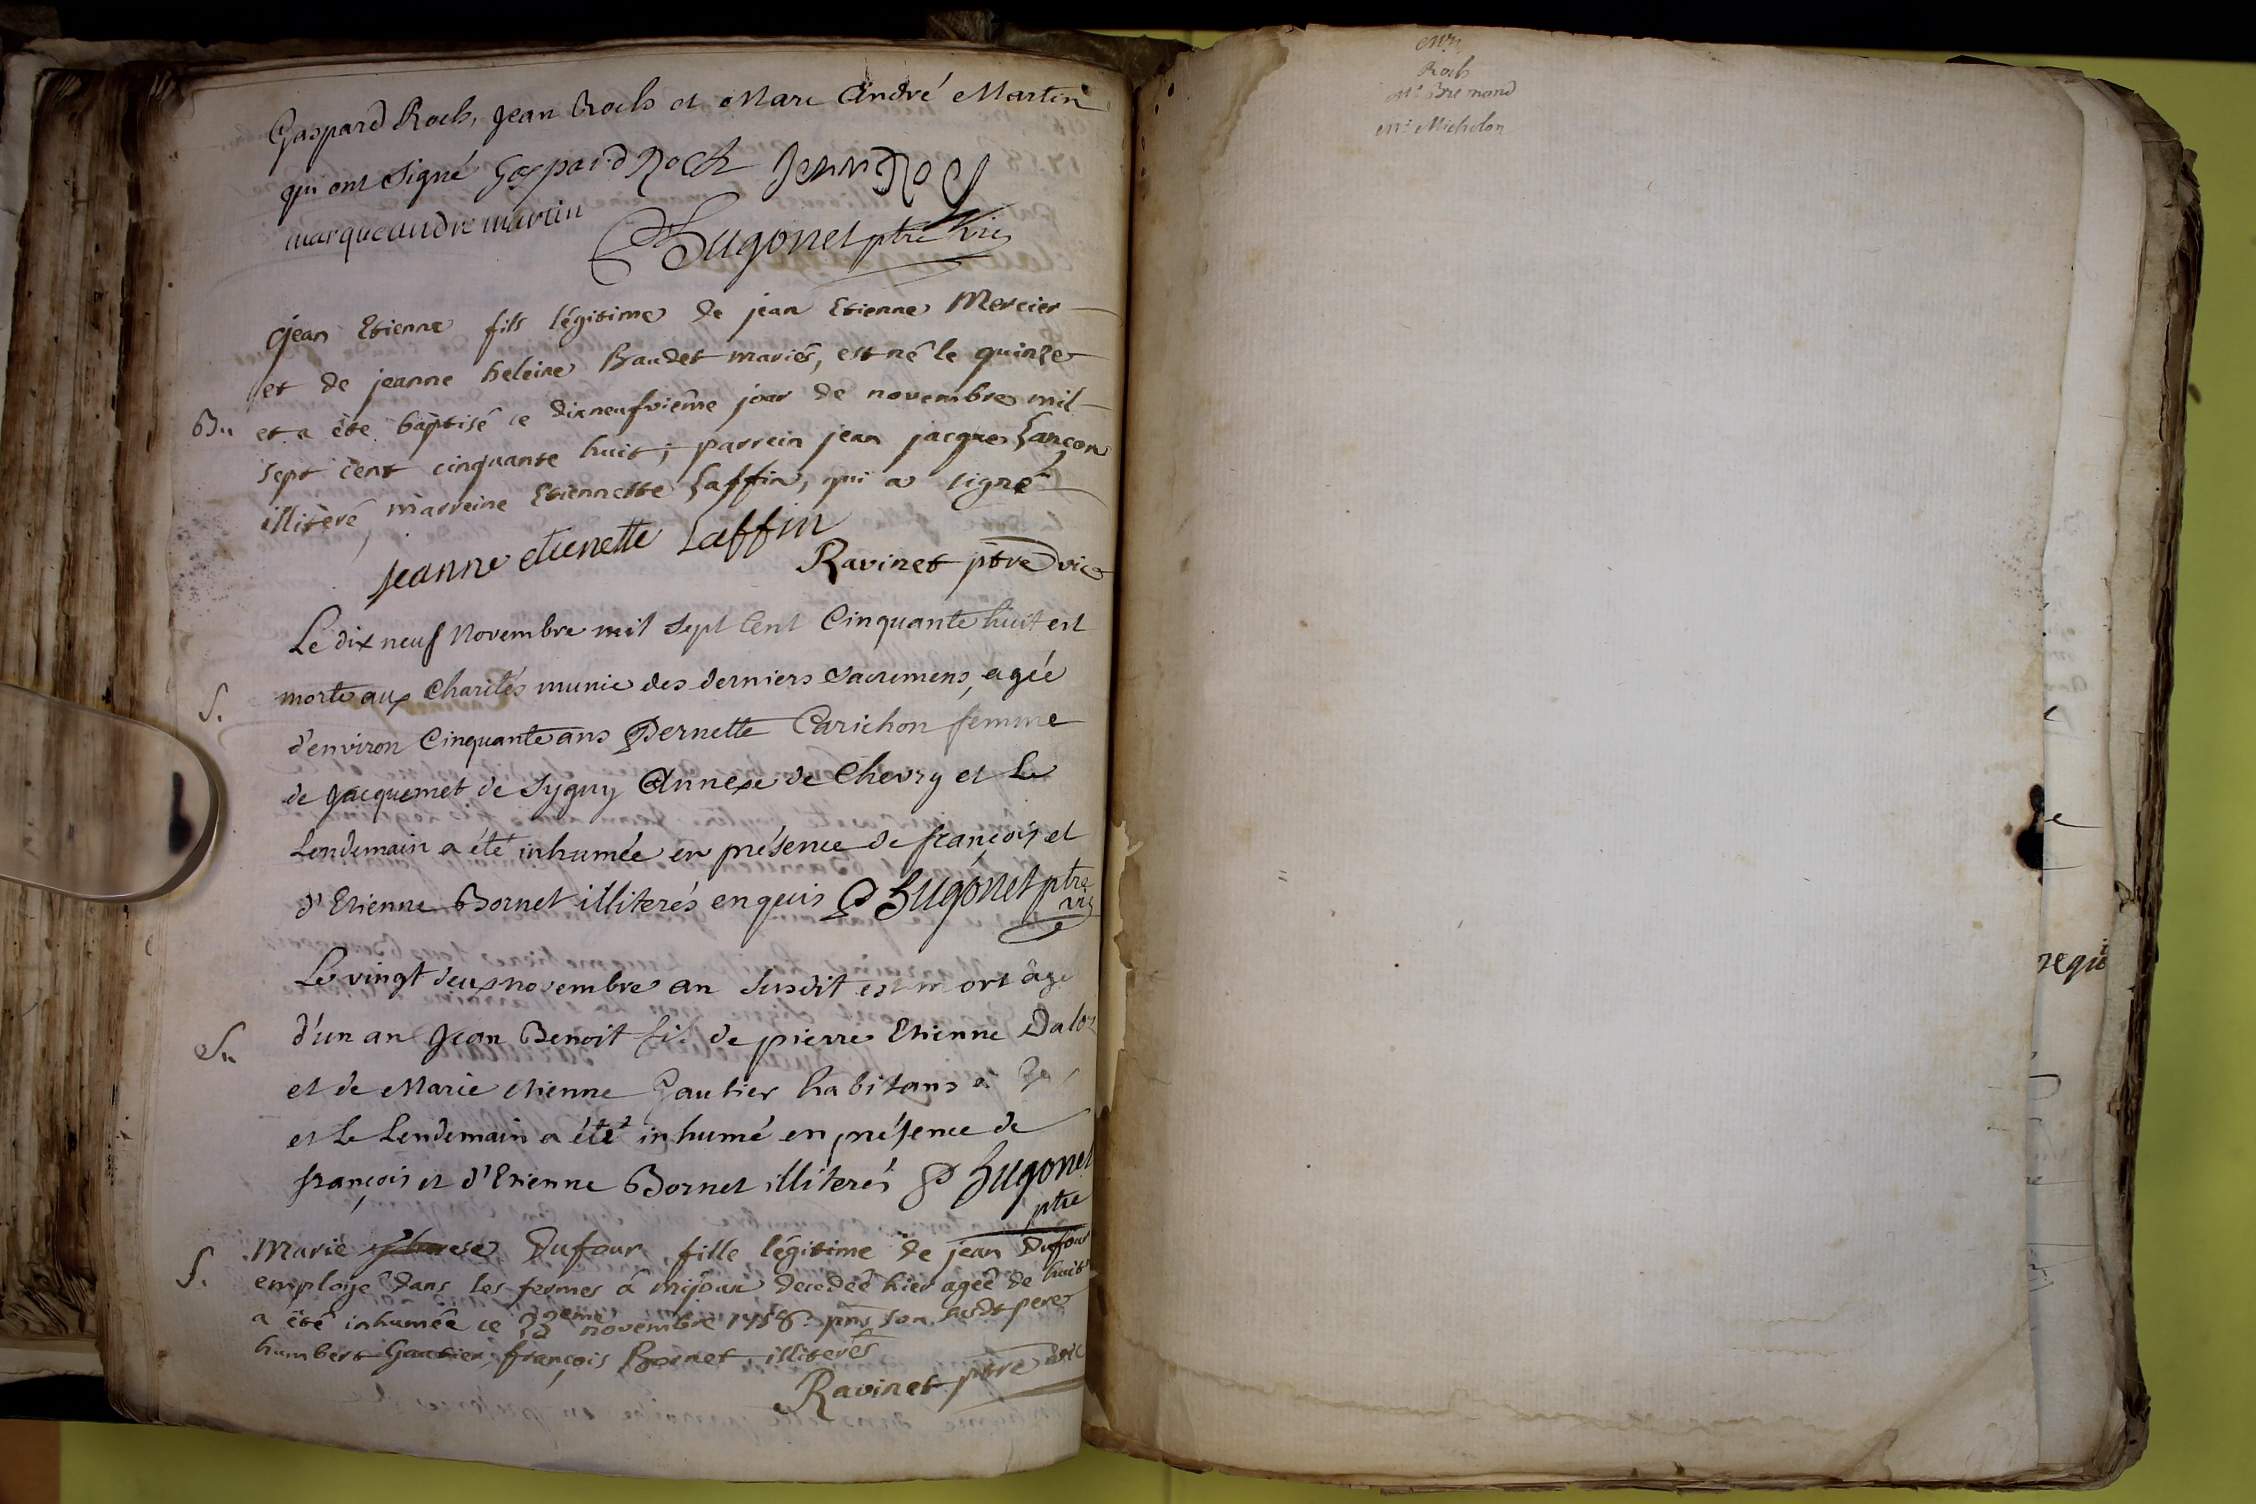 Gaspard Roch, Jean Roch et Marc André Martin
qui ont signé Gaspard Roch Jean Roch
marque andre martin
Hugonet ptre vic
Jean Etienne fils légitime de jean Etienne Mercier
et de jeanne heleine Baudet mariés, est né le quinze
B. et a été baptisé ce dixneufvième jour de novembre mil
sept cent cinquante huit; parrein jean jacques Lançon
illiteré, marreine Etiennette Laffin, qui a signé
jeanne etienette Laffin
Ravinet ptre vic
Le dix neuf Novembre mil Sept Cent Cinquante huit est
S. morte aux Charités munie des derniers Sacremens, agée
d'environ Cinquante ans Pernette Carichon femme
de Jacquemet de Syguy Annexe de Chevry et Le
Lendemain a été inhumée en présence de françois et
d'Etienne Bornet illiterés enquis Hugonet ptre
vic
Le vingt deux novembre an Susdit est mort âgé
S. d'un an Jean Benoit fils de pierre Etienne Daloz
et de Marie etienne Gautier habitans a
et Le Lendemain a été inhumé en présence de
françois et d'Etienne Bornet illiterés Hugonet
ptre
S. Marie Dufour, fille légitime de jean Dufour
employé dans les fermes à mijoux decedée hier agée de huit
a été inhumée ce 23eme novembre 1758. pnts son susdt pere
humbert Gautier, françois Bornet, illiterés
Ravinet ptre vic
Roch
Mr Bremond
Mr Michelon